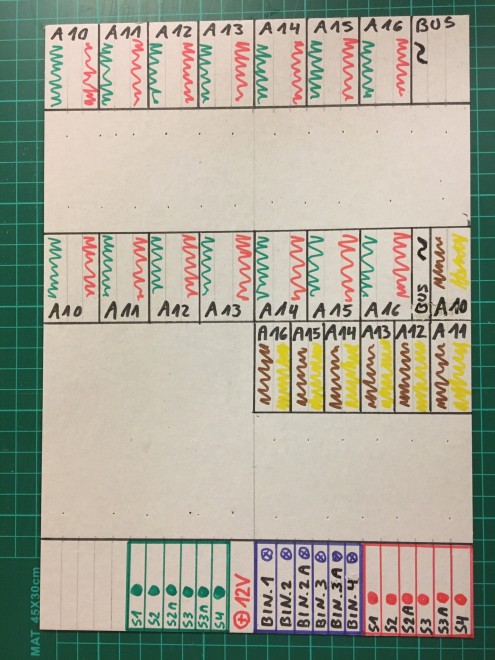 A10 A11 A12 A13 A14 A15 A16 BUS
~
~
A10 A11 A12 A13 A14 A15 A16 BUS A10
A16 A15 A14 A13 A12 A11
S1 S2 S2A S3 S3A S4 ⊕12V BIN.1 ⊗ BIN.2 ⊗ BIN.2A ⊗ BIN.3 ⊗ BIN.3A ⊗ BIN.4 ⊗ S1 S2 S2A S3 S3A S4
MAT 45X30cm